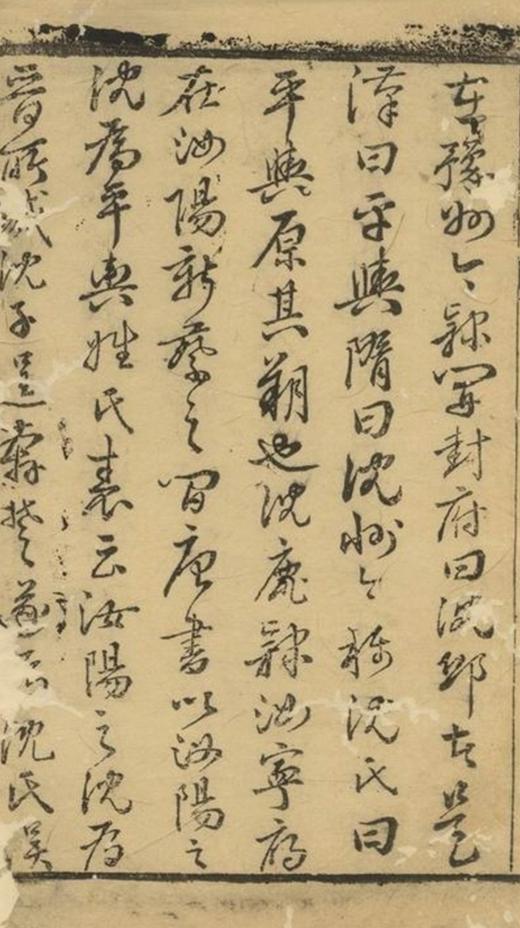 在豫州今隸開封府曰沈邱在是
漢曰平輿隋曰沈州今稱沈氏曰
平輿原其朔也沈鹿隸汝寧府
在汝陽新蔡之間唐書以汝陽之
沈為平輿姓氏表云汝陽之沈為
晉所滅沈子逞奔楚遂為沈氏吳